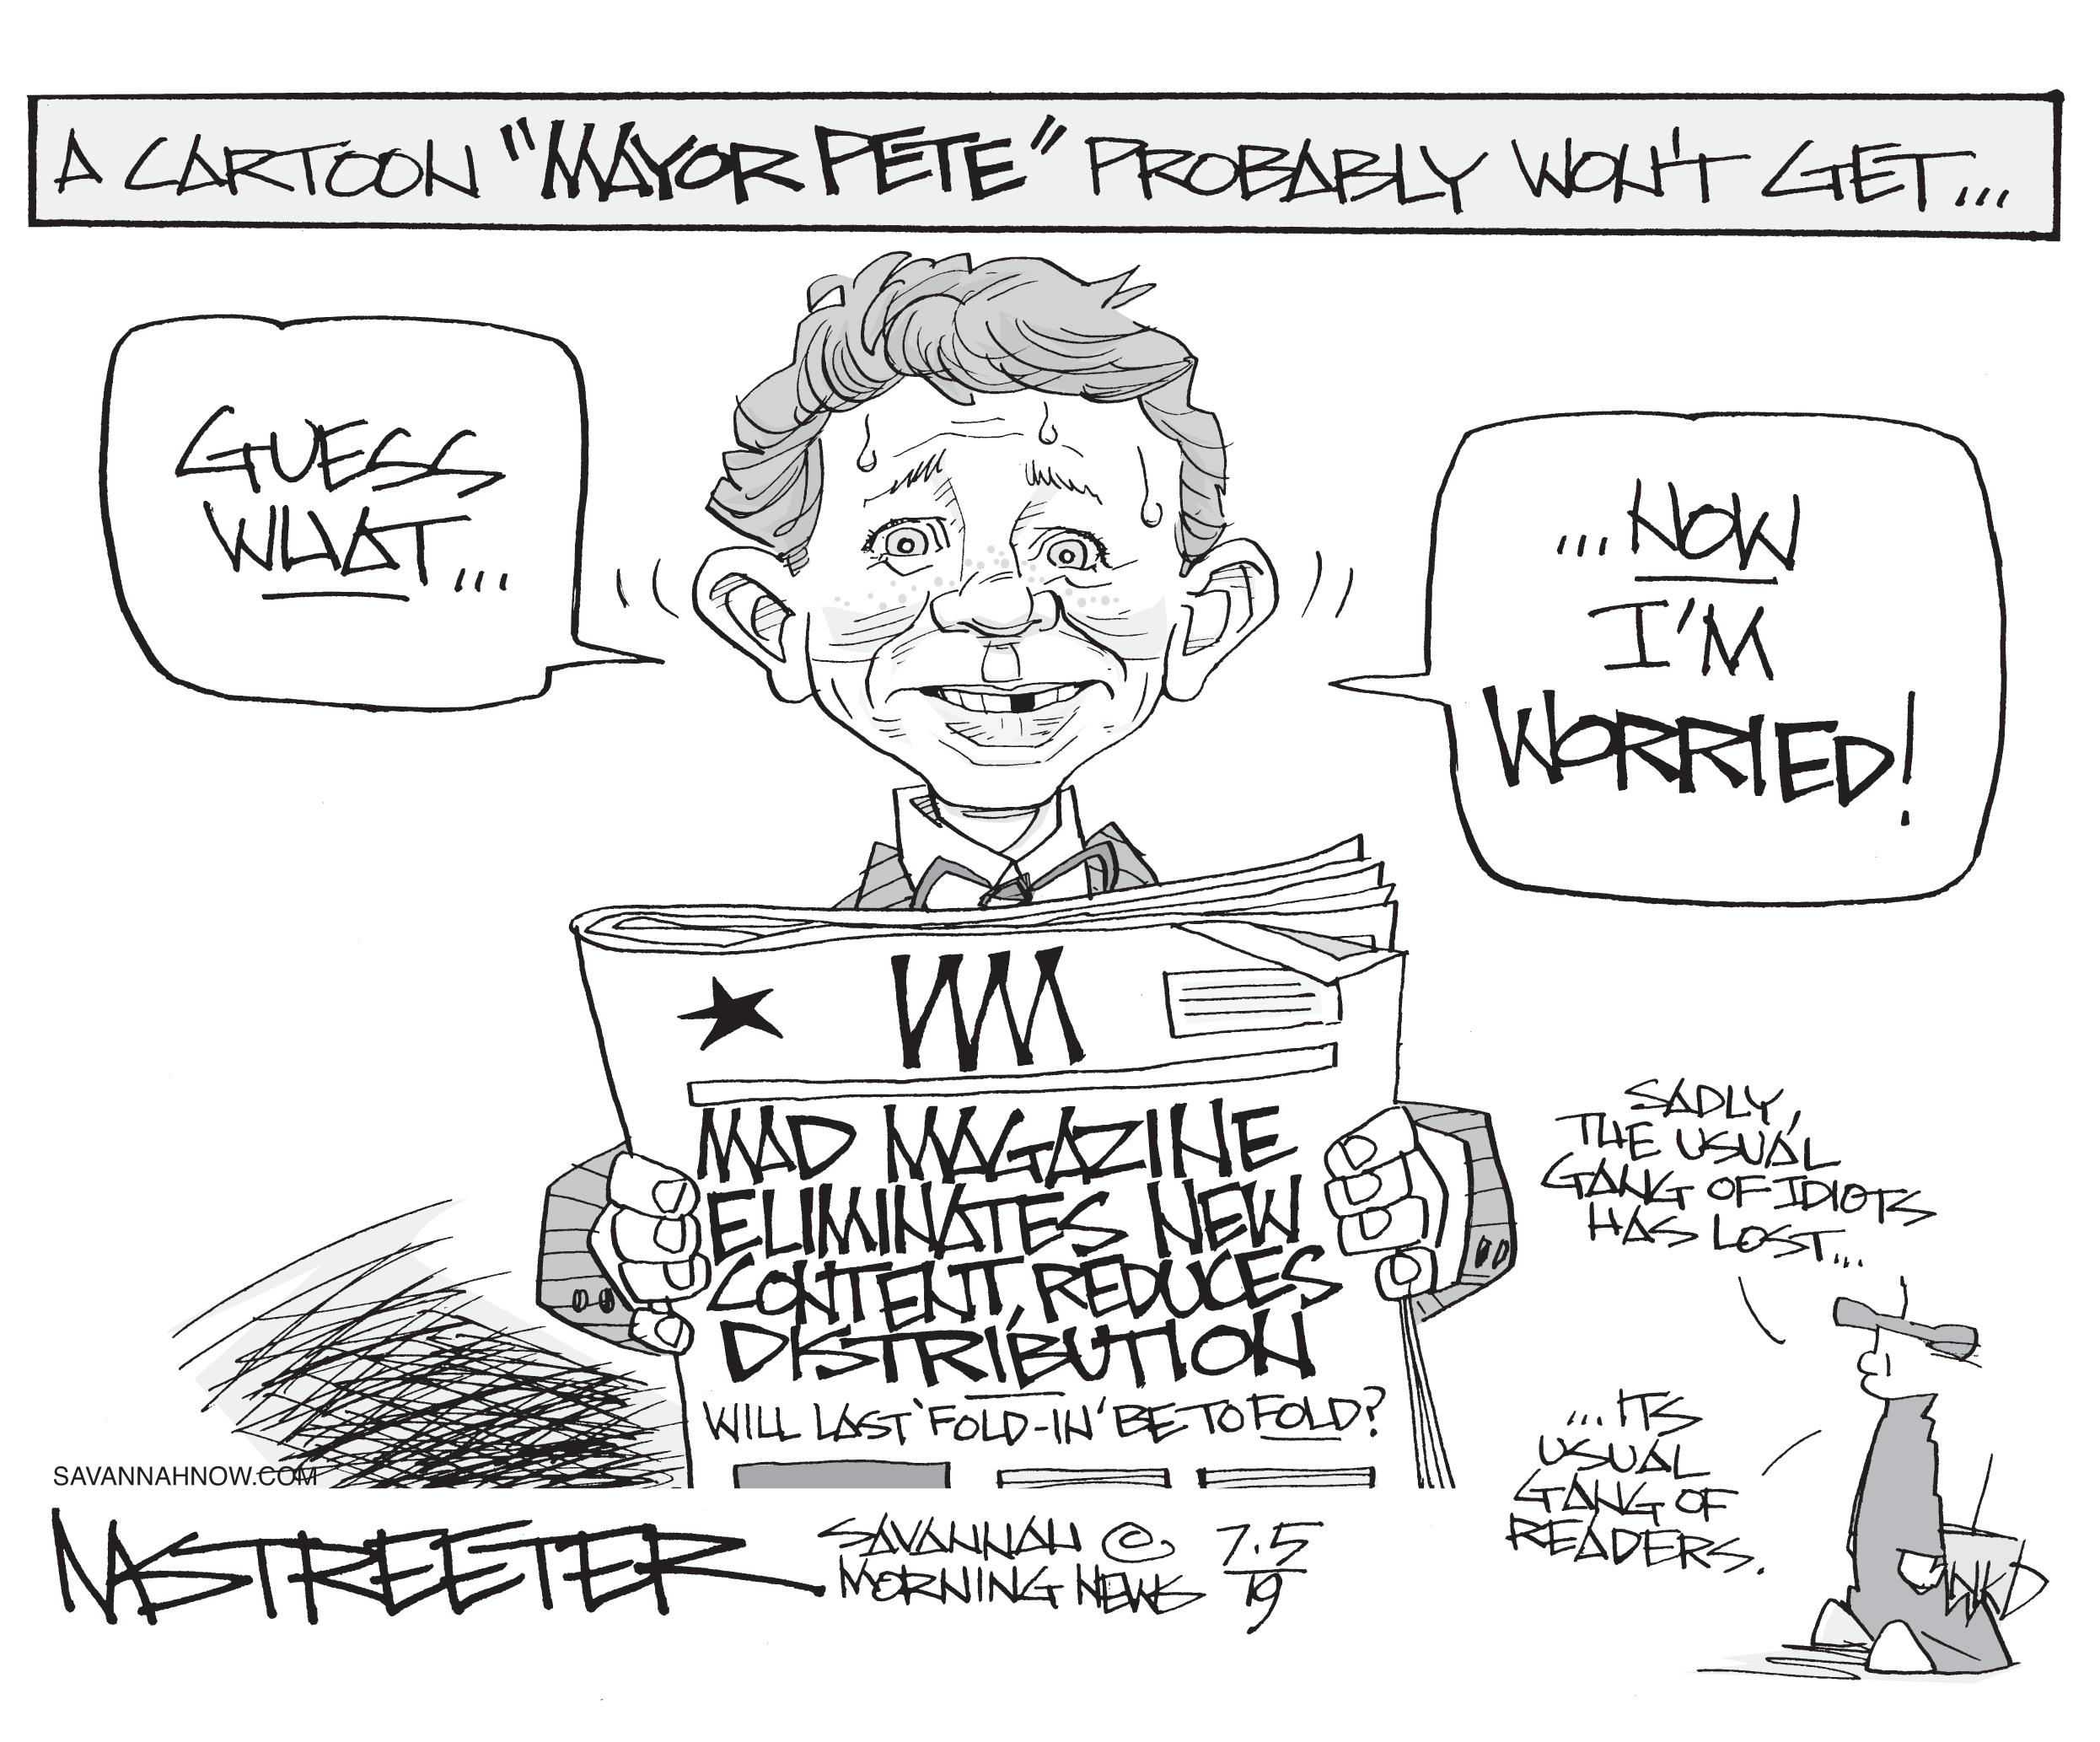 A CARTOON "MAYOR PETE" PROBABLY WON'T GET...
GUESS
WHAT...
...NOW
I'M
WORRIED!
MAD MAGAZINE
ELIMINATES NEW
CONTENT, REDUCES
DISTRIBUTION
WILL LAST 'FOLD-IN' BE TO FOLD?
SADLY,
THE USUAL
GANG OF IDIOTS
HAS LOST...
...ITS
USUAL
GANG OF
READERS.
SAVANNAHNOW.COM
STREETER
SAVANNAH ©
MORNING NEWS
7.5
19